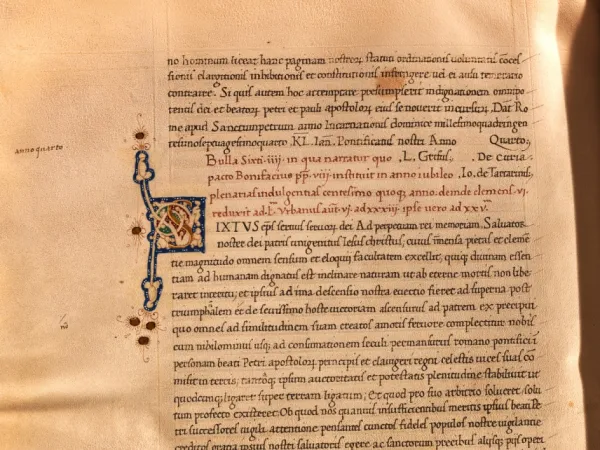 no hominum liceat hanc paginam nostroꝝ statuti ordinationis voluntatis cōces
sionis elargitionis inhibitionis et constitutionis infringere uel ei ausu temerario
contraire. Si quis autem hoc attemptare presumpserit indignationem omnipo
tentis dei et beatoꝝ petri et pauli apostoloꝝ eius se nouerit incursuꝝ. Dat̄ Ro
me apud Sanctumpetrum anno Incarnationis dominice millesimoquadringen
tesimoseptuagesimoquarto. KL. Ian̄. Pontificatus nostri Anno Quarto.
anno quarto
Bulla Sixti .iiij. in qua narratur quo .L. Grifus. . De Curia
pacto Bonifacius pp. viii. instituit in anno iubileo . Io. de Tartarinis.
plenarias indulgentias centesimo quoqꝫ anno. deinde clemens .vi.
reduxit ad .L. Urbanus aūt .vi. ad xxxiij. ipse uero ad xxv.
SIXTUS ep̄s seruus seruoꝝ dei Ad perpetuam rei memoriam. Saluator
noster dei patris unigenitus Iesus christus, cuius īmensa pietas et clemē
tie magnitudo omnem sensum et eloquij facultatem excellit, quiqꝫ diuinam essen
tiam ad humanam dignatus est inclinare naturam ut ab eterne mortis non libe
raret interitu, et ipsius ad ima descensio nostra euectio fieret ad superna post
triumphalem et de seuissimo hoste uictoriam ascensurus ad patrem ex precipua
quo omnes ad similitudinem suam creatos amoris feruore complectitur nobis
cum nihilominus usqꝫ ad consumationem seculi permansurus romano pontifici
personam beati Petri. apostoloꝝ principis et clauigeri regni celestis uices suas cō
misit in terris, tantāqꝫ ipsum auctoritatis et potestatis plenitudine stabiliuit ut
quodcunqꝫ ligaret super terram ligatum, Et quod pro suo arbitrio solueret solu
tum profecto existeret: Ob quod nos quanuis insufficientibus meritis ipsius beati Pe
tri successores uigili. attentione pensantes cunctos fideles populos nostre uigilantie
creditos gratia ipsius nostri saluatoris egere ac sanctorum precibus alijsqꝫ pijs operi